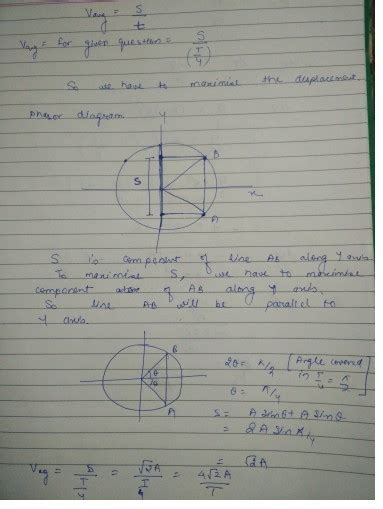 Vavg = S/t
Vavg = for given question = S/(T/4)
So we have to maximise the displacement.
Phasor diagram
y
B
S
x
A
S is component of line AB along Y axis
To maximise S, we have to maximise
component of AB along Y axis.
So line AB will be parallel to
Y axis.
B
θ
θ
A
2θ = π/2 [Angle covered in T/4 = π/2]
θ = π/4
S = A sinθ + A sinθ
= 2A sin π/4
= √2A
Vavg = S/(T/4) = √2A/(T/4) = 4√2A/T